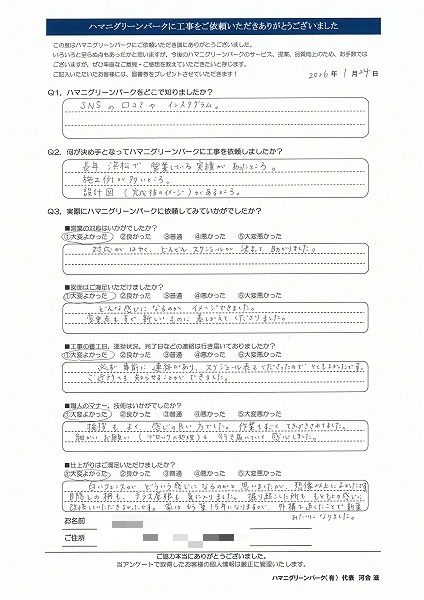 ハマニグリーンパークに工事をご依頼いただきありがとうございました
この度はハマニグリーンパークにご依頼いただき誠にありがとうございました。
いろいろと至らぬ点もあったかと思いますが、今後のハマニグリーンパークのサービス、提案、品質向上のため、お手数では
ございますが、ぜひ率直なご意見・ご感想を教えていただきたいと存じます。
ご記入いただいたお客様には、図書券をプレゼントさせていただきます！
2026年 1月24日
Q1. ハマニグリーンパークをどこで知りましたか？
SNSの口コミやインスタグラム。
Q2. 何が決め手となってハマニグリーンパークに工事を依頼しましたか？
長年 浜松で 営業している実績があったところ。
施工例が多いところ。
設計図（完成後のイメージ）があるところ。
Q3. 実際にハマニグリーンパークに依頼してみていかがでしたか？
■営業の対応はいかがでしたか？
①大変よかった ②良かった ③普通 ④悪かった ⑤大変悪かった
対応が はやく、どんどん スケジュールが 決まって 助かりました。
■図面はご満足いただけましたか？
①大変よかった ②良かった ③普通 ④悪かった ⑤大変悪かった
どんな感じに なるのかが イメージできました。
変更点も すぐ 新しい ものに 差しかえて くださりました。
■工事の着工日、進捗状況、完了日などの連絡は行き届いておりましたか？
①大変よかった ②良かった ③普通 ④悪かった ⑤大変悪かった
必ず 事前に 連絡があり、スケジュール表も くださったので とてもよかったです。
ご近所へも 知らせることが できました。
■職人のマナー、技術はいかがでしたか？
①大変よかった ②良かった ③普通 ④悪かった ⑤大変悪かった
挨拶も よく、感じの良い方でした。作業も すごく ておきさせてました。
細かい お願い（ブロックの処理）も 行き届いていて 感心しました。
■仕上がりはご満足いただけましたか？
①大変よかった ②良かった ③普通 ④悪かった ⑤大変悪かった
白いフェンスが どういう感じに なるのかなと 思いましたが、想像以上によかったです。
目隠しの柄も、テラス屋根も 気に入りました。掘り起こした所も もともとの感じに
改修していただきよかったです。家は もう築15年になりますが、外構を直したことで 新築
みたいになりました。
お名前
ご住所
ご協力本当にありがとうございました。
当アンケートで取得したお客様の個人情報は厳正に管理いたします。
ハマニグリーンパーク(有) 代表 河合 滋